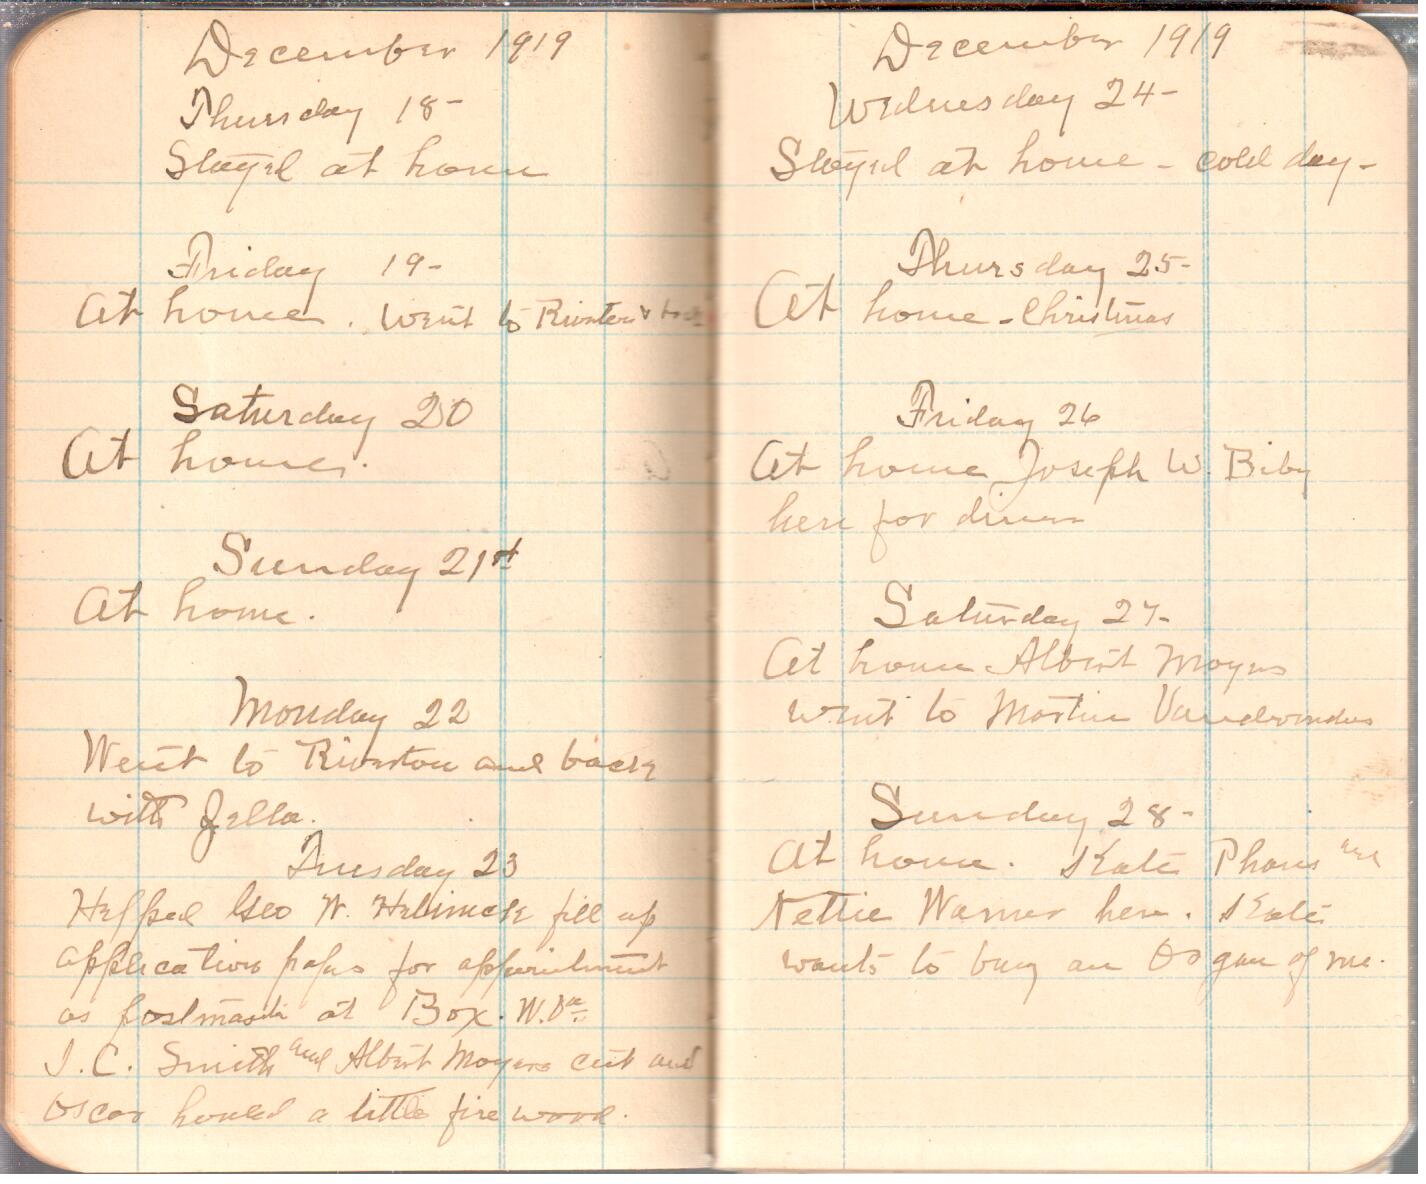 December 1919
Thursday 18-
Stayed at home
Friday 19-
At home. Went to Riverton &
Saturday 20
At home.
Sunday 21st
At home.
Monday 22
Went to Riverton and back
with Zella.
Tuesday 23
Helped Geo W. Helmick fill up
application papers for appointment
as postmaster at Box. W.Va
I.C. Smith and Albert Moyers cut and
Oscar hauled a little fire wood.
December 1919
Wednesday 24-
Stayed at home - cold day-
Thursday 25-
At home - Christmas
Friday 26
At home Joseph W. Biby
here for dinner
Saturday 27-
At home Albert Moyers
went to Martin
Sunday 28-
At home. Kate and
Nettie Warner here. Kate
wants to buy an Organ of me.